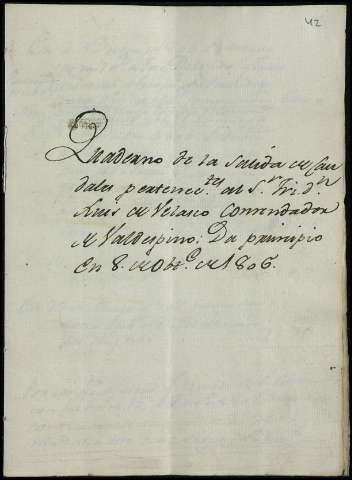 42
Quaderno de la salida de Cau
dales pertenec.tes al S.r Fri. d.n
Luis de Velasco Comendador
de Valdespino: Da principio
en 8. de Obt.e de 1806.